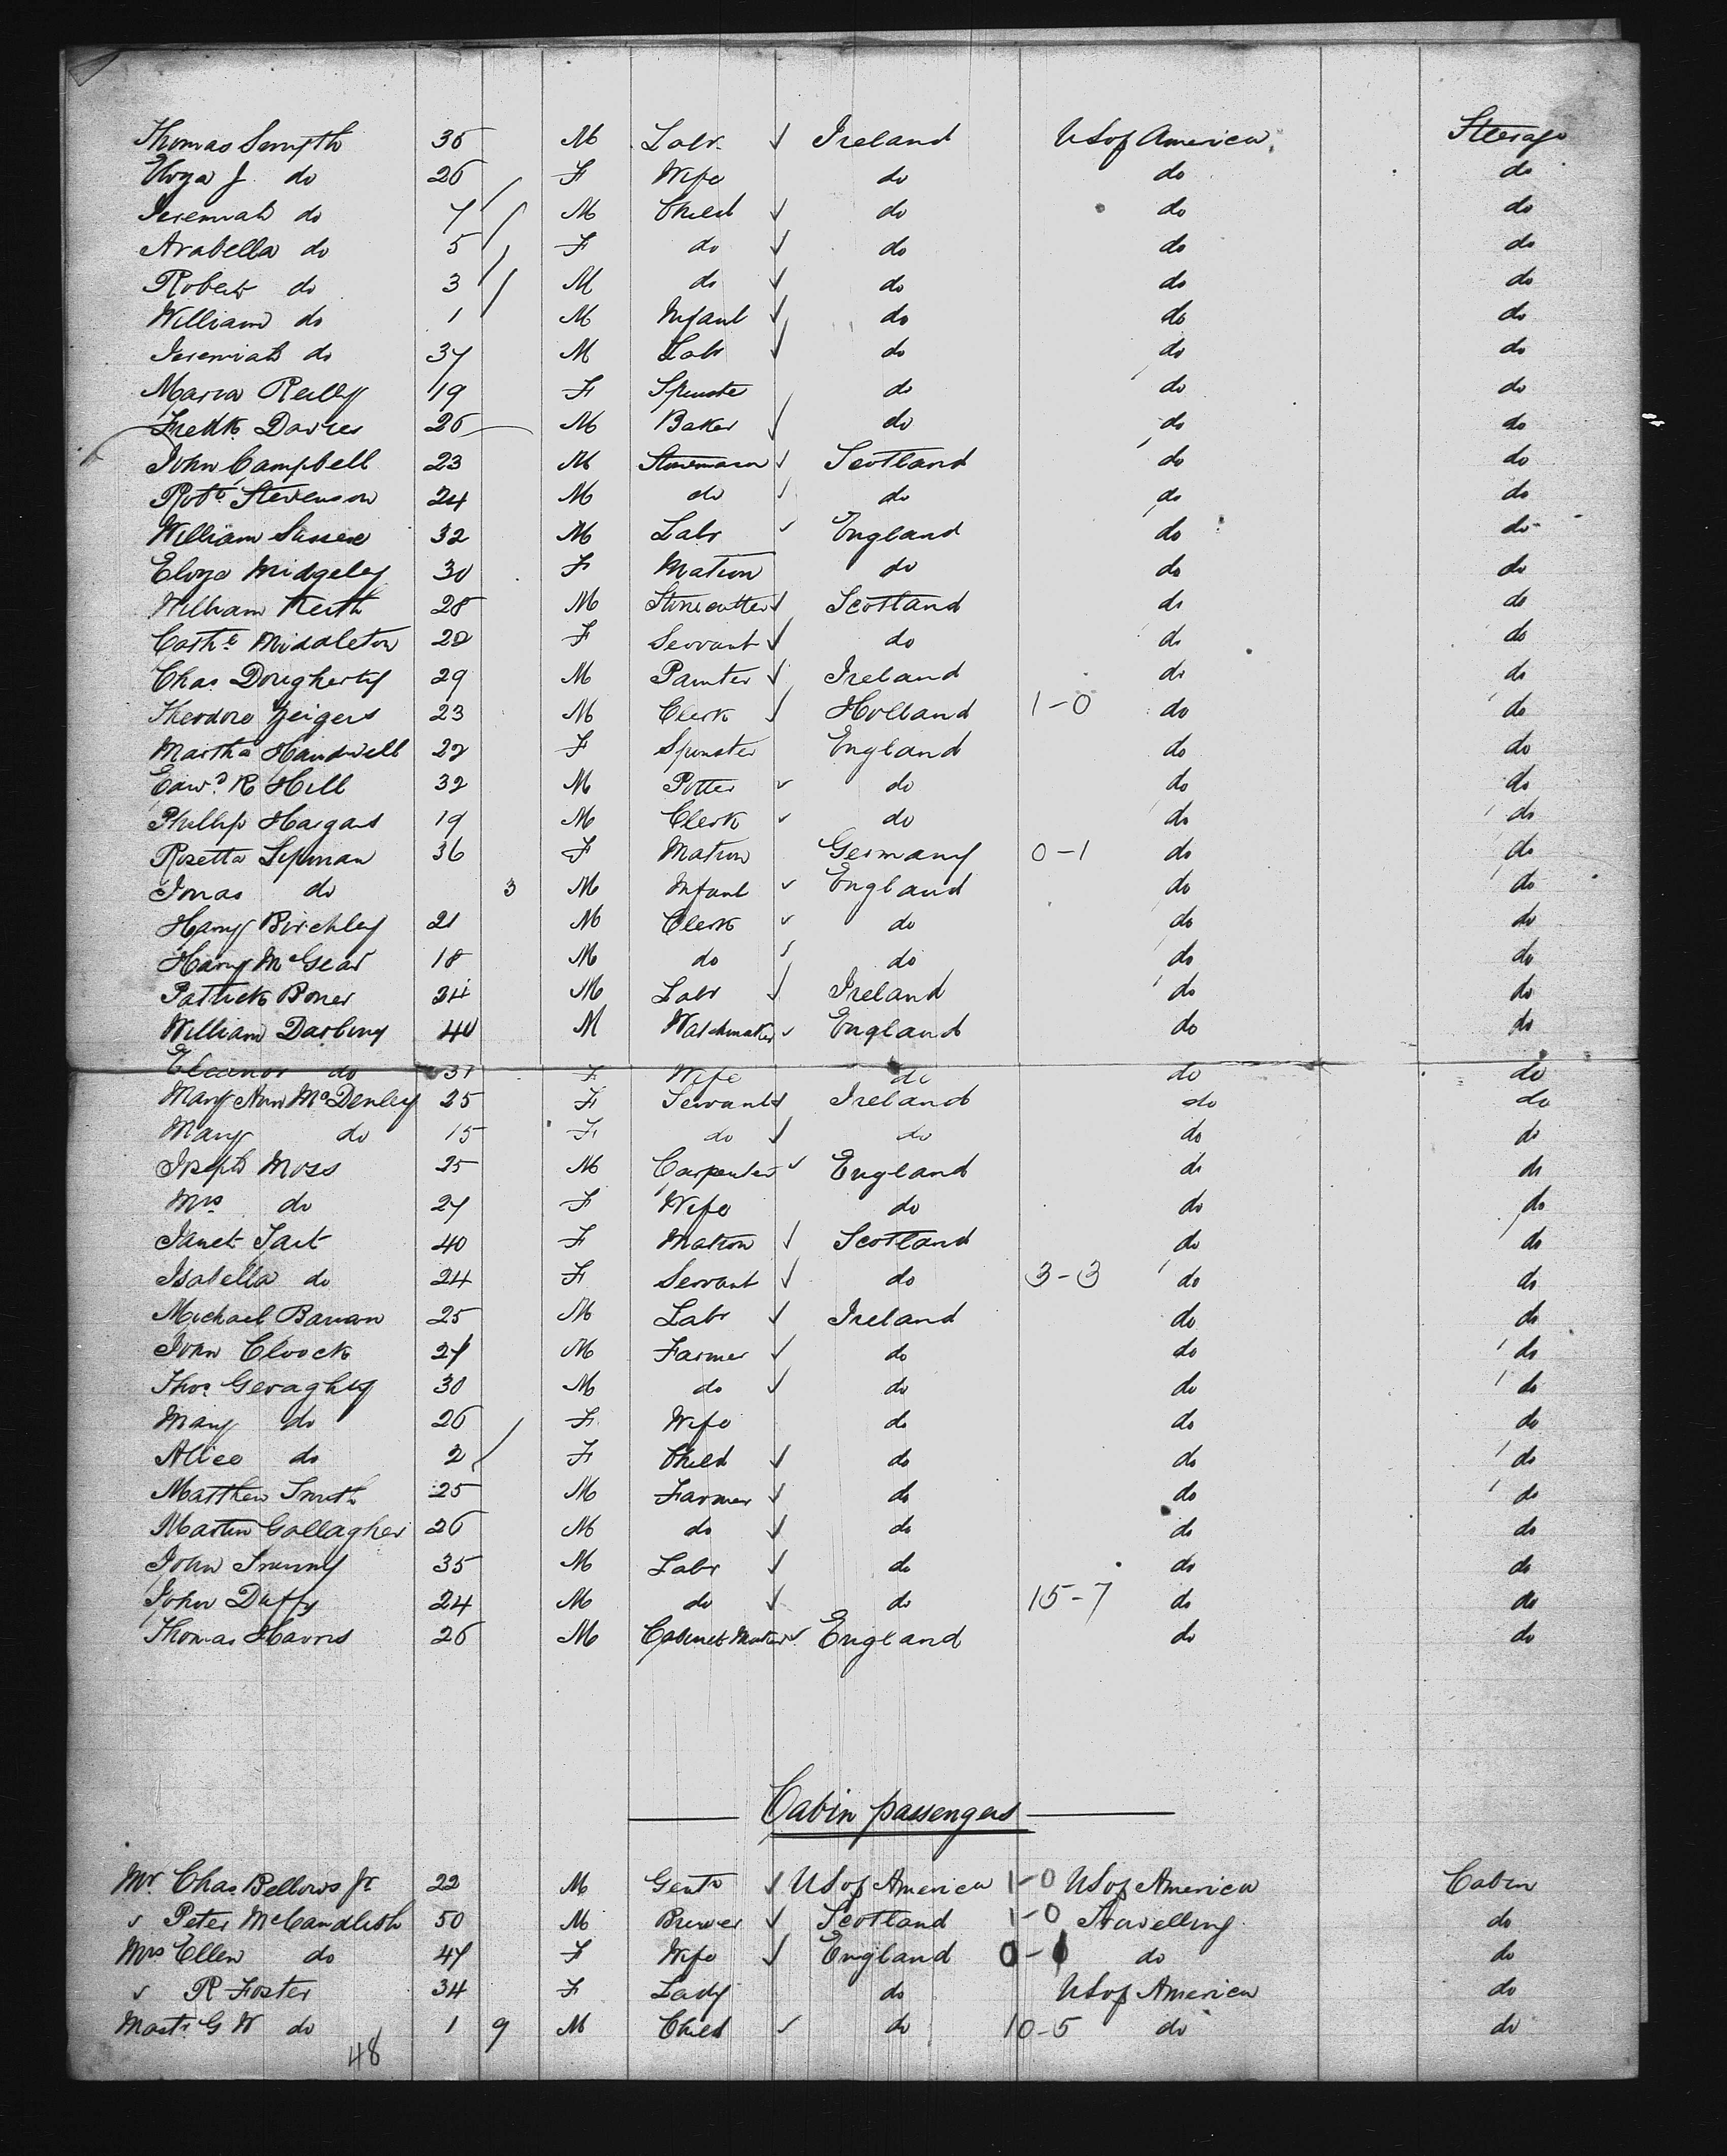 Thomas Smyth 35 M Labr Ireland US of America Steerage
Eliza J do 26 F Wife do do do
Jeremiah do 7 M Child do do do
Arabella do 5 F do do do do
Robert do 3 M do do do do
William do 1 M Infant do do do
Jeremiah do 37 M Labr do do do
Maria Reilly 19 F Spinster do do do
Fredk Davies 26 M Baker do do do
John Campbell 23 M Stonemason Scotland do do
Robt Stevenson 24 M do do do do
William 32 M Labr England do do
Eliza Midgeley 30 F Matron do do do
William Keith 28 M Stonecutter Scotland do do
Cathe Middleton 28 F Servant do do do
Chas Dougherty 29 M Painter Ireland do do
Theodore Geigers 23 M Clerk Holland 1-0 do do
Martha Handwell 22 F Spinster England do do
Edwd R Hill 32 M Potter do do do
Phillip Hargans 19 M Clerk do do do
Rosetta Lipman 36 F Matron Germany 0-1 do do
Jonas do 3 M Infant England do do
Harry Birchley 21 M Clerk do do do
Harry McGear 18 M do do do do
Patrick Boner 24 M Labr Ireland do do
William Darling 40 M Watchmaker England do do
Eleanor do 31 F Wife do do do
Mary Ann McDenley 25 F Servant Ireland do do
Mary do 15 F do do do do
Joseph Moss 25 M Carpenter England do do
Mrs do 27 F Wife do do do
Janet Tait 40 F Matron Scotland do do
Isabella do 24 F Servant do 3-3 do do
Michael Barran 25 M Labr Ireland do do
John Cloock 27 M Farmer do do do
Thos Geraghty 30 M do do do do
Mary do 26 F Wife do do do
Alice do 2 F Child do do do
Matthew Smith 25 M Farmer do do do
Martin Gallagher 26 M do do do do
John 35 M Labr do do do
John Duffy 24 M do do 15-7 do do
Thomas Harris 26 M Cabinet Maker England do do
Cabin passengers
Mr. Chas Bellows Jr 22 M Gentn US of America 1-0 US of America Cabin
" Peter McCandlish 50 M Brewer Scotland 1-0 Travelling do
Mrs Ellen do 47 F Wife England 0-1 do do
" R Foster 34 F Lady do US of America do
Mastr G W do 1 9 M Child do 10-5 do do
48